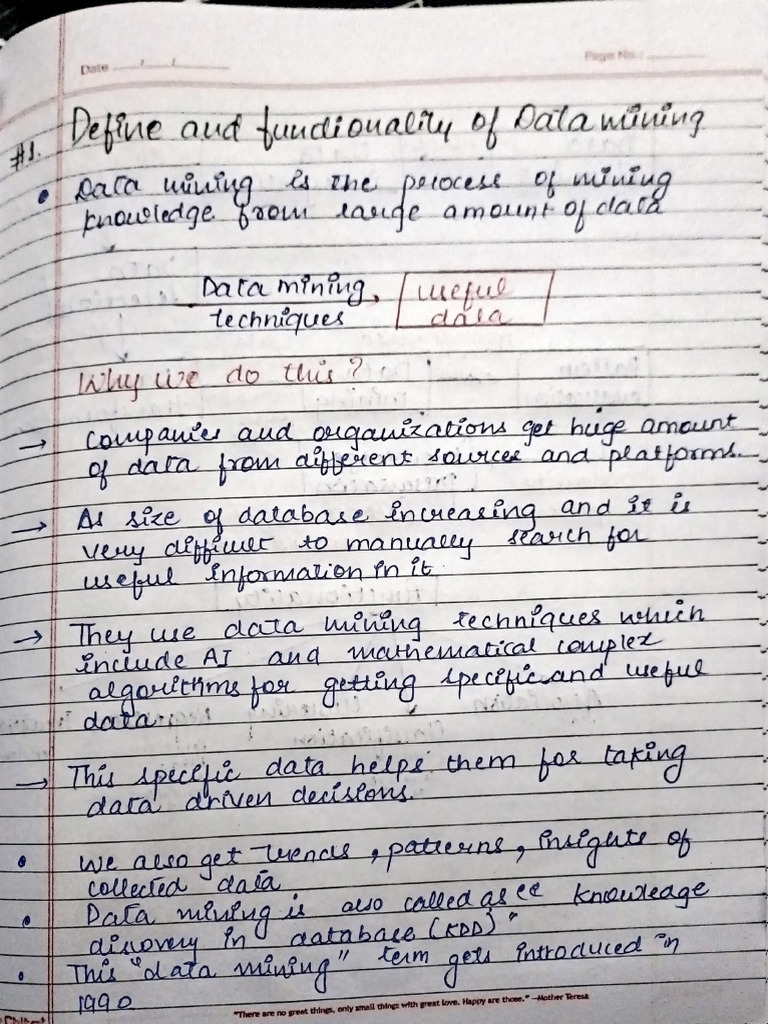 Date
Page No.:
#1. Define and functionality of Data mining
• Data mining is the process of mining
knowledge from large amount of data
Data mining
techniques
useful
data
Why we do this?
→ Companies and organizations get huge amount
of data from different sources and platforms.
→ As size of database increasing and it is
very difficult to manually search for
useful information in it.
→ They use data mining techniques which
include AI and mathematical complex
algorithms for getting specific and useful
data.
→ This specific data helps them for taking
data driven decisions.
• We also get trends, patterns, insights of
collected data
• Data mining is also called as "knowledge
discovery in database (KDD)"
• This "data mining" term gets introduced in
1990
"There are no great things, only small things with great love. Happy are those." —Mother Teresa